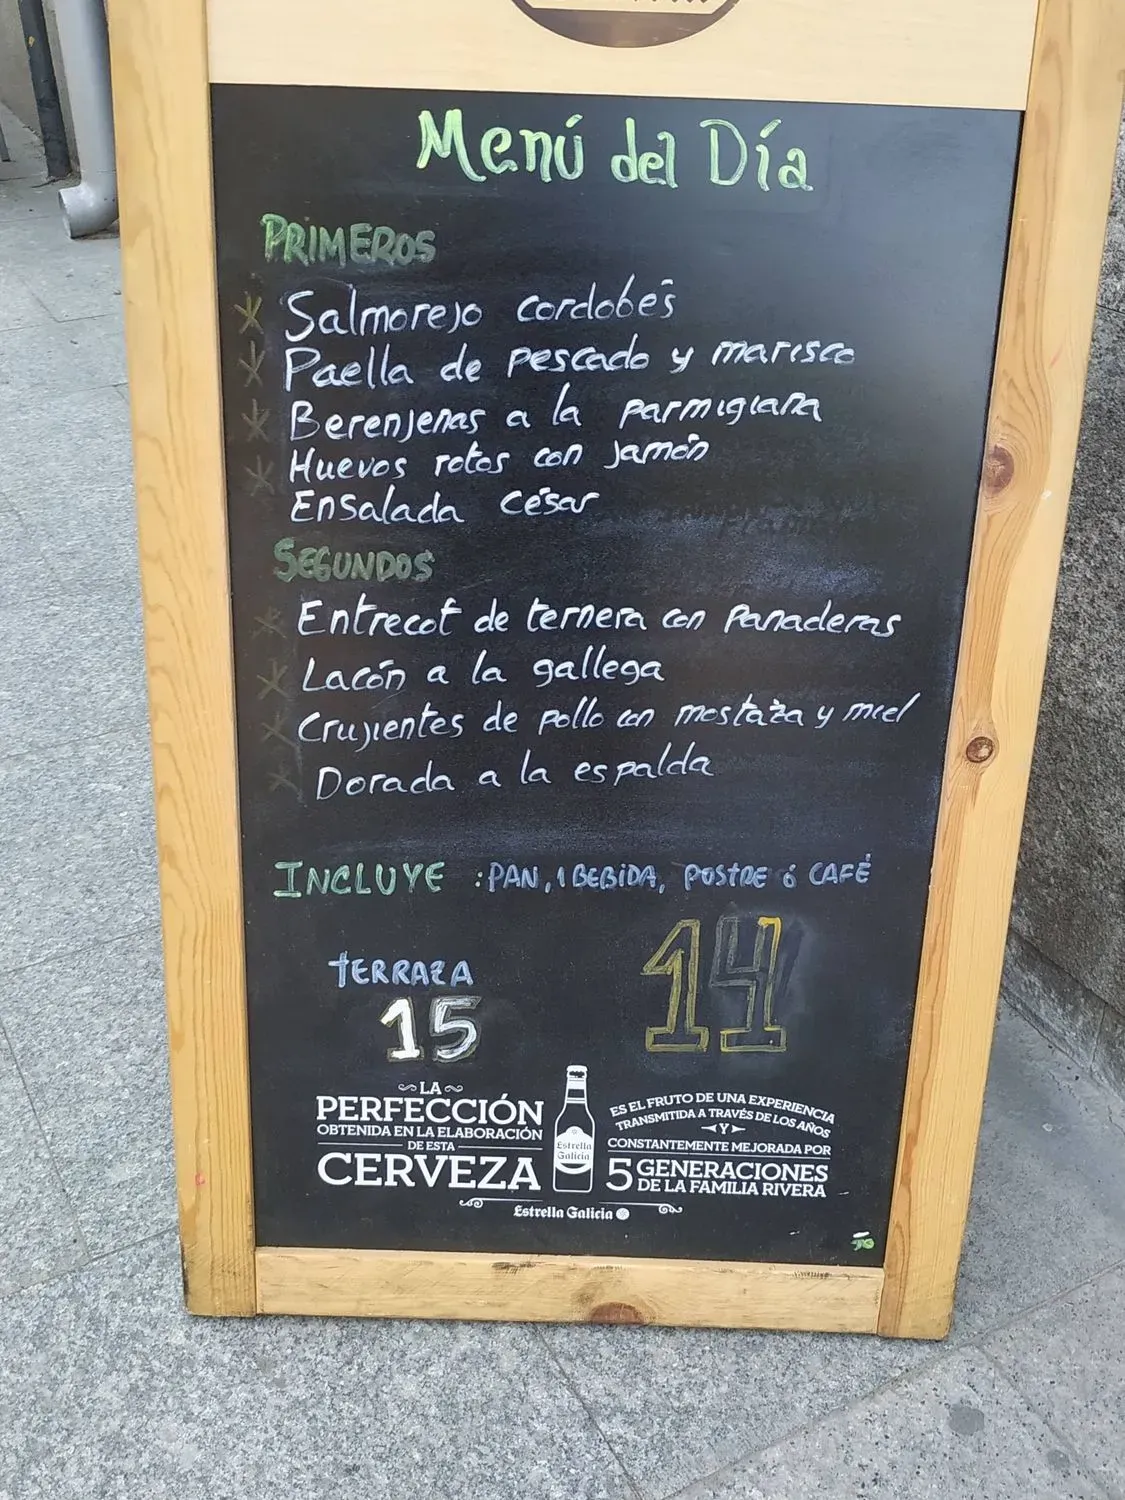 Menú del Día
PRIMEROS
Salmorejo cordobés
Paella de pescado y marisco
Berenjenas a la parmigiana
Huevos rotos con jamón
Ensalada césar
SEGUNDOS
Entrecot de ternera con panaderas
Lacón a la gallega
Crujientes de pollo con mostaza y miel
Dorada a la espalda
INCLUYE : PAN, 1 BEBIDA, POSTRE ó CAFÉ
TERRAZA
15
14
LA
PERFECCIÓN
OBTENIDA EN LA ELABORACIÓN
DE ESTA
CERVEZA
Estrella
Galicia
ES EL FRUTO DE UNA EXPERIENCIA
TRANSMITIDA A TRAVÉS DE LOS AÑOS
Y
CONSTANTEMENTE MEJORADA POR
5 GENERACIONES
DE LA FAMILIA RIVERA
Estrella Galicia